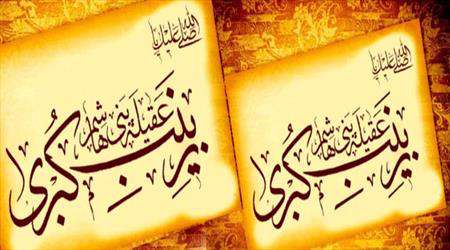 صلی الله علیک یا
عقیله بنی هاشم
زینب کبری
صلی الله علیک یا
عقیله بنی هاشم
زینب کبری